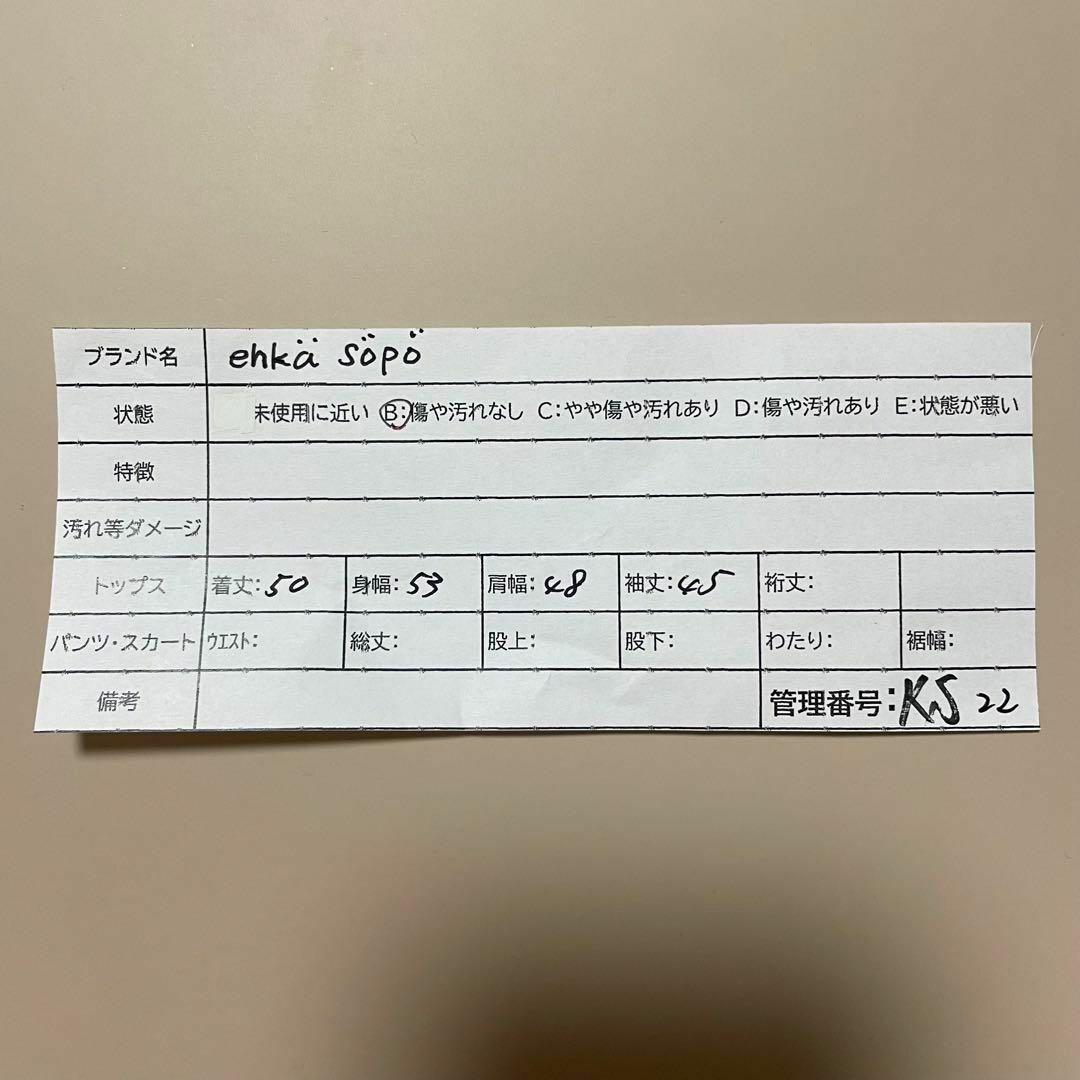 ブランド名 ehkä söpö
状態 未使用に近い B:傷や汚れなし C:やや傷や汚れあり D:傷や汚れあり E:状態が悪い
特徴
汚れ等ダメージ
トップス 着丈:50 身幅:53 肩幅:48 袖丈:45 裄丈:
パンツ・スカート ウエスト: 総丈: 股上: 股下: わたり: 裾幅:
備考 管理番号:KS 22